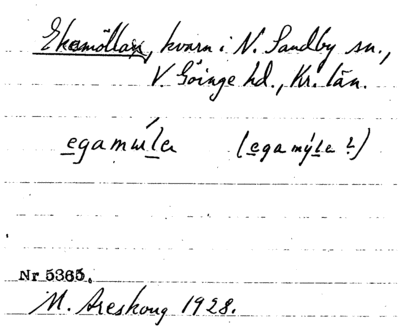 Ekemöllan, kvarn i N. Sandby sn.,
V. Göinge hd., Kr. län.
egamɯ́la (egamýla?)
Nr 5365.
M. Areskoug 1928.